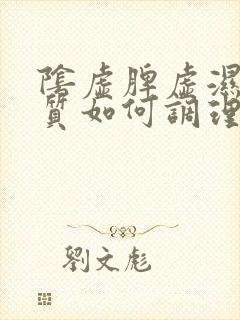 陰虛脾虛濕
質如何調理
劉文彪